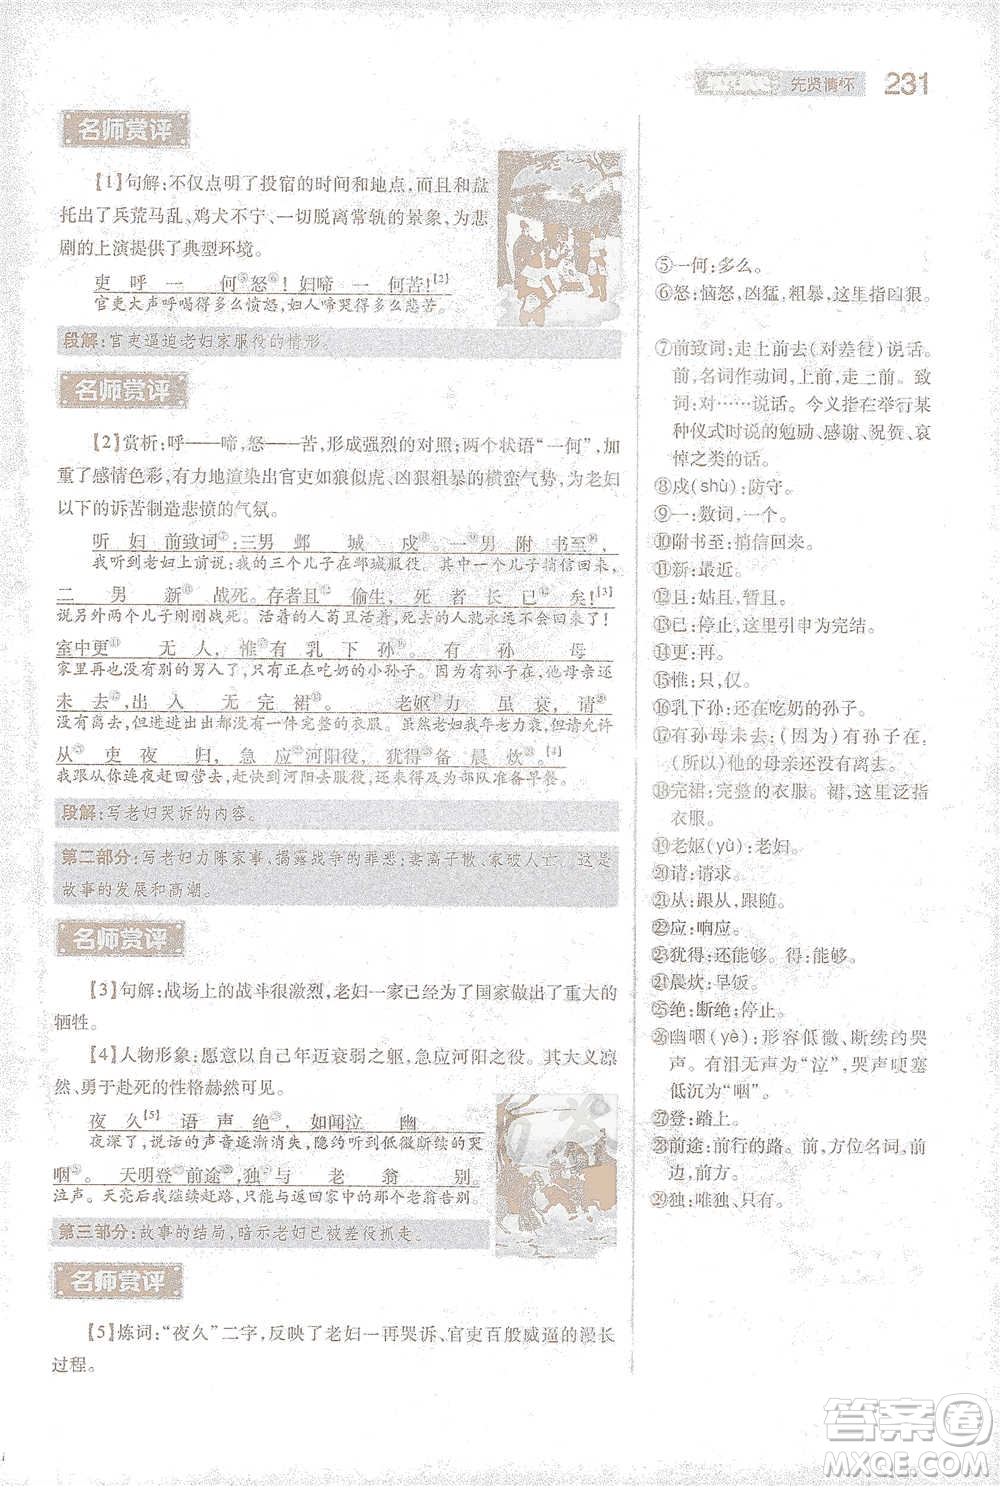 先贤情怀
231
名师赏评
【1】句解:不仅点明了投宿的时间和地点,而且和盘
托出了兵荒马乱、鸡犬不宁、一切脱离常轨的景象,为悲
剧的上演提供了典型环境。
吏呼一何⑤怒⑥!妇啼一何苦![2]
官吏大声呼喝得多么愤怒,妇人啼哭得多么悲苦!
段解:官吏逼迫老妇家服役的情形。
名师赏评
【2】赏析:呼——啼,怒——苦,形成强烈的对照;两个状语“一何”,加
重了感情色彩,有力地渲染出官吏如狼似虎、凶狠粗暴的横蛮气势,为老妇
以下的诉苦制造悲愤的气氛。
听妇前致词⑦:三男邺城戍⑧。一⑨男附书至⑩,
我听到老妇上前说:我的三个儿子在邺城服役。一个儿子捎信回来,
二男新⑪战死。存者且⑫偷生,死者长已⑬矣![3]
说另外两个儿子刚刚战死。活着的人苟且活着,死去的人就永远不会回来了!
室中更⑭无人,惟⑮有乳下孙⑯。有孙母
家里再也没有别的男人了,只有正在吃奶的小孙子。因为孙子还在,他的母亲还
未去⑰,出入无完裙⑱。老妪⑲力虽衰,请⑳
没有离去,但进进出出都没有一件完整的衣服。虽然老妇我年老力衰,但请允许
从㉑吏夜归,急应㉒河阳役,犹得㉓备晨炊㉔。[4]
我跟从你连夜赶回营去,赶快到河阳去服役,还来得及为部队准备早餐。
段解:写老妇哭诉的内容。
第二部分:写老妇力陈家事,揭露战争的罪恶:妻离子散、家破人亡。这是
故事的发展和高潮。
名师赏评
【3】句解:战场上的战斗很激烈,老妇一家已经为了国家做出了重大的
牺牲。
【4】人物形象:愿意以自己年迈衰弱之躯,急应河阳之役。其大义凛
然、勇于赴死的性格赫然可见。
夜久[5]语声绝㉕,如闻泣幽
夜深了,说话的声音逐渐消失,隐约听到低微断续的哭
咽㉖。天明登㉗前途㉘,独㉙与老翁别。
泣声。天亮后我继续赶路,只能与返回家中的老翁告别。
第三部分:故事的结局,暗示老妇已被差役抓走。
名师赏评
【5】炼词:“夜久”二字,反映了老妇一再哭诉、官吏百般威逼的漫长
过程。
⑤一何:多么。
⑥怒:恼怒,凶猛,粗暴,这里指凶狠。
⑦前致词:走上前去(对差役)说话。
前,名词作动词,上前,走上前。致
词:对……说话。今义指在举行某
种仪式时说的勉励、感谢、祝贺、哀
悼之类的话。
⑧戍(shù):防守。
⑨一:数词,一个。
⑩附书至:捎信回来。
⑪新:最近。
⑫且:姑且,暂且。
⑬已:停止,这里引申为完结。
⑭更:再。
⑮惟:只,仅。
⑯乳下孙:还在吃奶的孙子。
⑰有孙母未去:(因为)有孙子在,
(所以)他的母亲还没有离去。
⑱完裙:完整的衣服。裙,这里泛指
衣服。
⑲老妪(yù):老妇。
⑳请:请求。
㉑从:跟从,跟随。
㉒应:响应。
㉓犹得:还能够。得:能够。
㉔晨炊:早饭。
㉕绝:断绝;停止。
㉖幽咽(yè):形容低微、断续的哭
声。有泪无声为“泣”,哭声哽塞
低沉为“咽”。
㉗登:踏上。
㉘前途:前行的路。前,方位名词,前
边,前方。
㉙独:唯独、只有。
答案卷
MXQE.COM